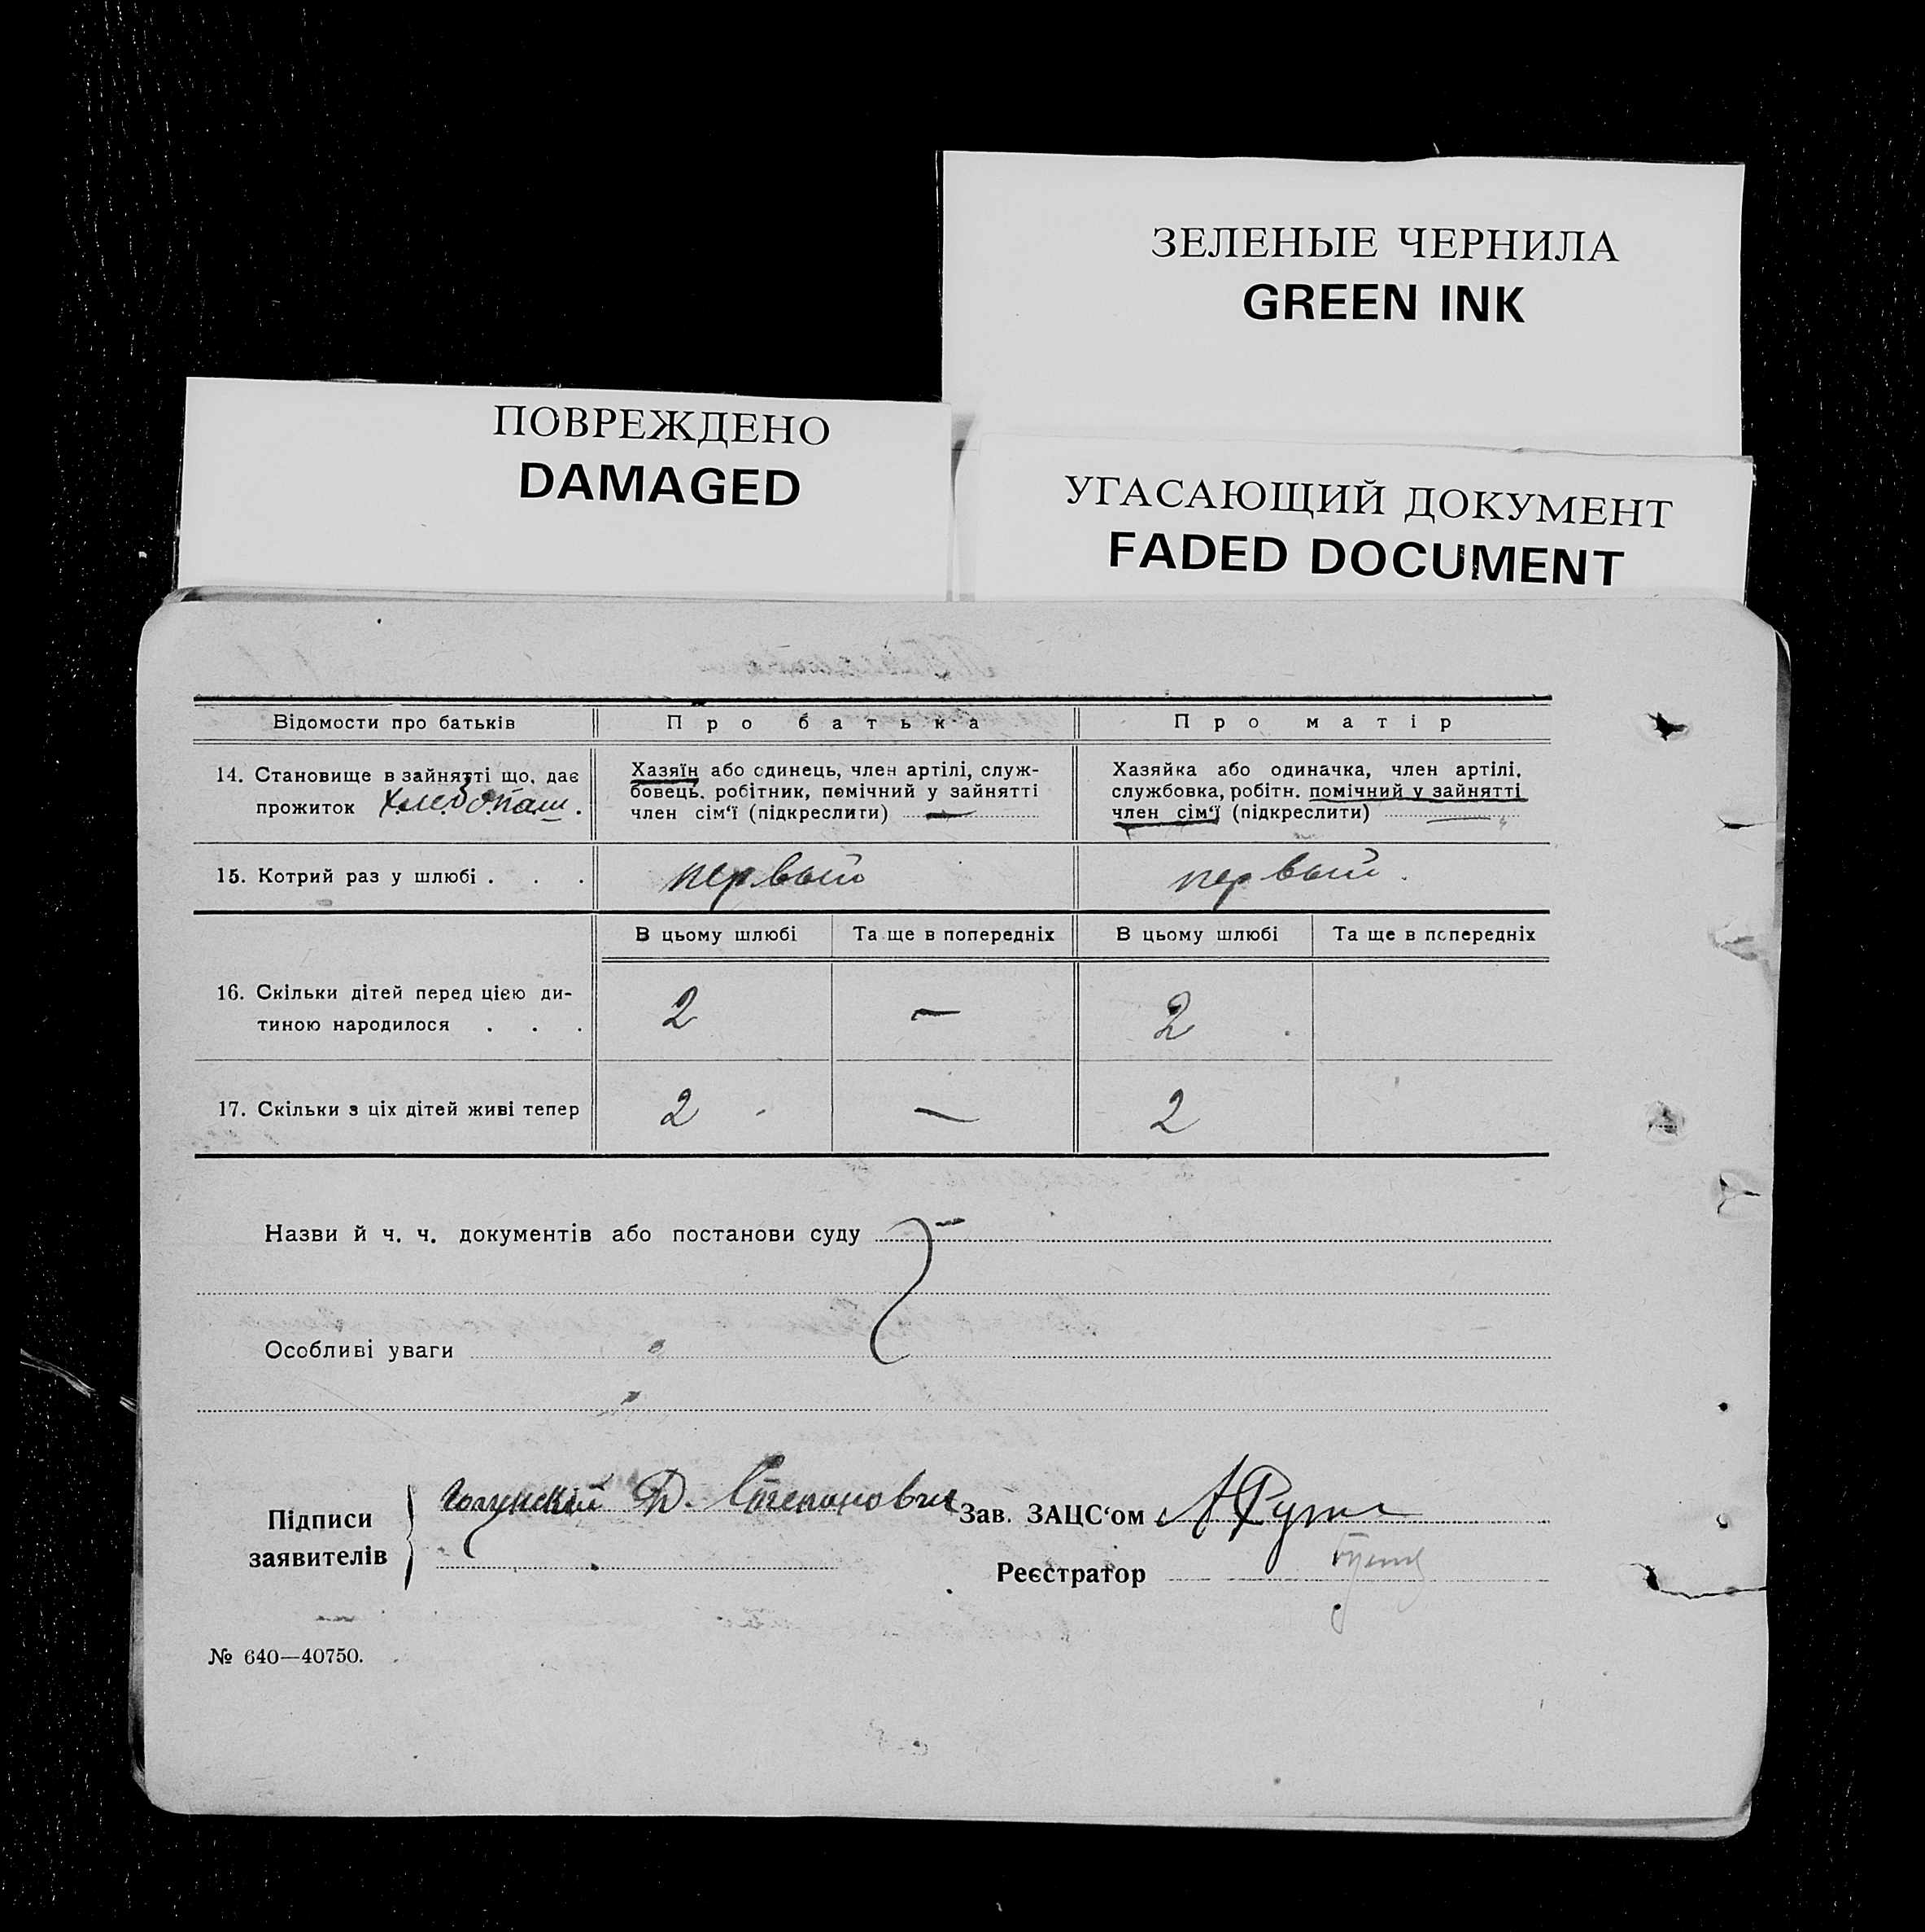 ЗЕЛЕНЫЕ ЧЕРНИЛА
GREEN INK
ПОВРЕЖДЕНО
DAMAGED
УГАСАЮЩИЙ ДОКУМЕНТ
FADED DOCUMENT
Відомости про батьків
Про батька
Про матір
14. Становище в зайнятті що, дає
прожиток Хлебопаш.
Хазяїн або одинець, член артілі, служ-
бовець, робітник, помічний у зайнятті
член сім‘ї (підкреслити) —
Хазяйка або одиначка, член артілі,
службовка, робітн. помічний у зайнятті
член сім‘ї (підкреслити) —
15. Котрий раз у шлюбі . . .
первый
первый.
В цьому шлюбі
Та ще в попередніх
В цьому шлюбі
Та ще в попередніх
16. Скільки дітей перед цією ди-
тиною народилося . . .
2
—
2
17. Скільки з ціх дітей живі тепер
2
—
2
Назви й ч. ч. документів або постанови суду —
Особливі уваги
Підписи
заявителів
Д. Степанович
Зав. ЗАЦС‘ом
Реєстратор
№ 640—40750.